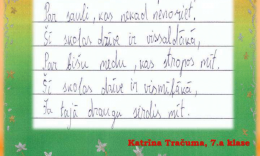 Par sauli, kas nekad nenoriet.
Šī skolas dzīve ir vissaldākā,
Par bišu medu, kas stropos mīt.
Šī skolas dzīve ir vismīļākā,
Ja tajā draugu sirdis mīt.
Katrīna Tračuma, 7.a klase